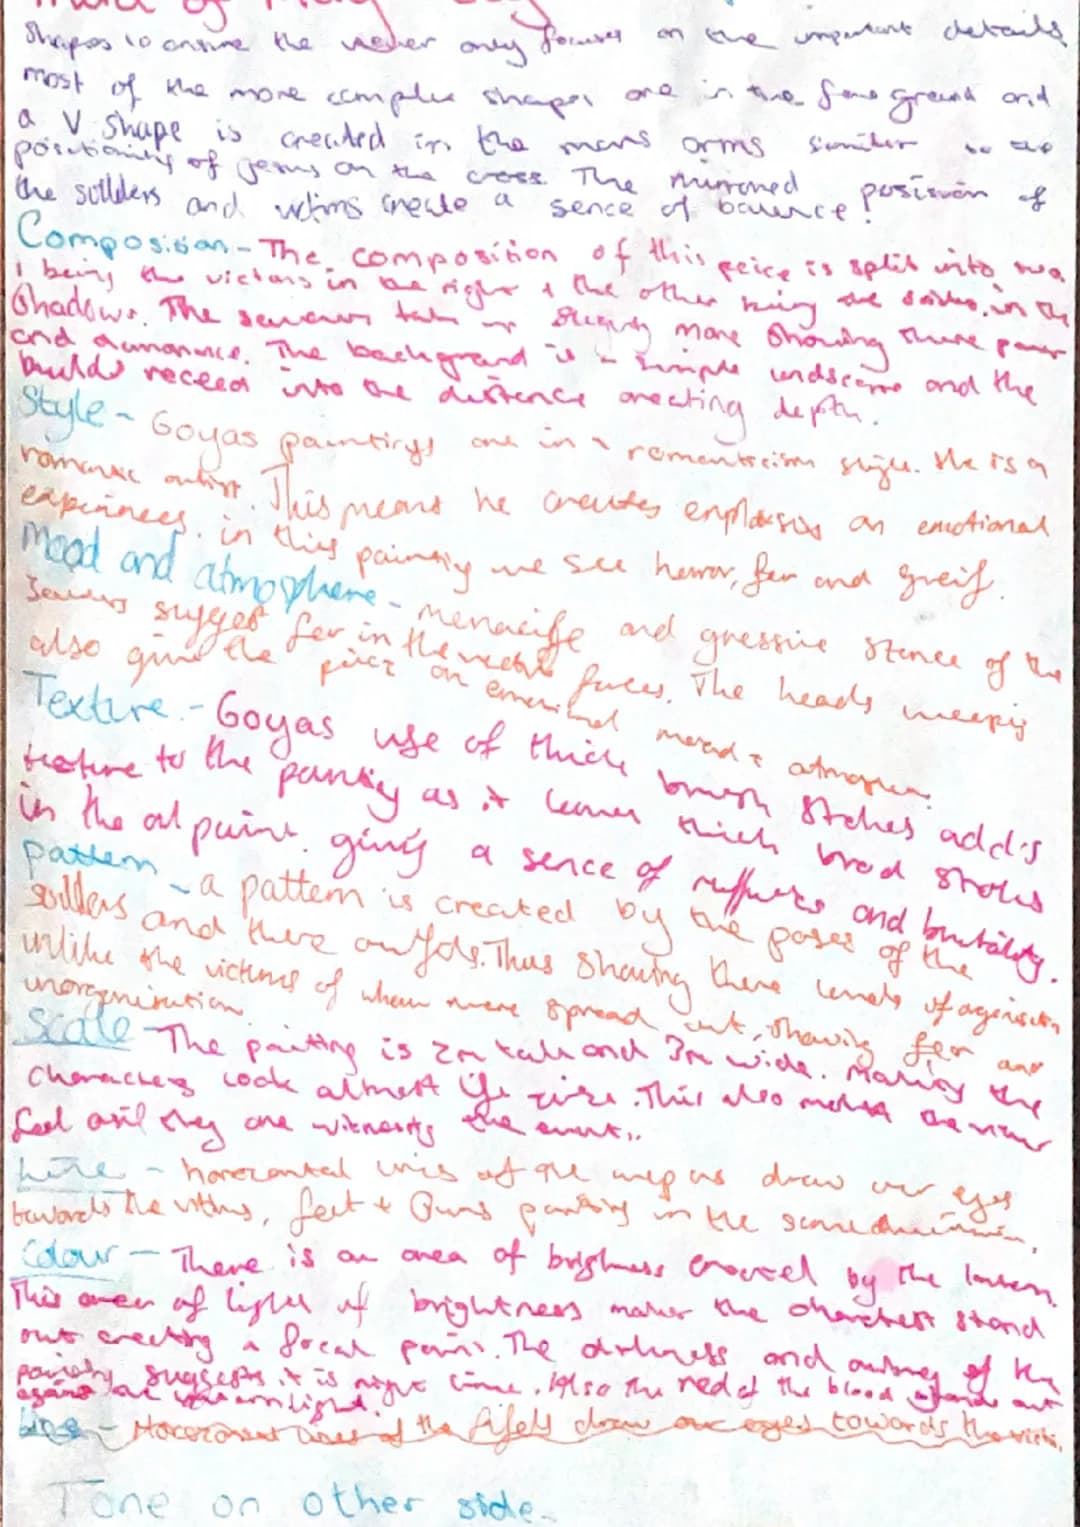 shapes to ensure the viewer only focuses on the important details
most of the more complex shapes are in the fore ground and
a V shape is created in the mans arms similar to the
positioning of jesus on the cross. The mirrored position of
the solliders and victims create a sence of balance!
Composision - The composition of this peice is split into two
1 being the victims in the right & the other being the in the
Shadows. The take up slightly more showing there power
and The background is a simple landscape and the
builds receed into the distence creating depth.
Style - Goyas paintings are in a romanticism style. He is a
romantic artist. This means he creates emphasis on emotional
in this painting we see horror, fear and greif.
Mood and atmosphere - and gressive stance of the
suggest fer in the faces. The heads weeping
also give the piece an emotional mood &
Texture - Goyas use of thick brush adds
texture to the painting as it leaves thick brod stroks
in the oil paint. giving a sence of and brutality.
pattern - a pattern is created by the poses of the
solliders and there outfits. Thus showing there levels of
unlike the victims of whom were spread out, showing fear and
unorganisation
Scale - The painting is 2m tall and 3m wide. Making the
Characters look almost life size. This also makes the viewer
feel as if they are witnessing the event.
Line - horozontal lines of the wepons draw our eyes
towards the vitims, feet & Guns pointing in the same
Colour - There is an area of brightness created by the lantern
This area of light of brightness makes the stand
out creating a focal point. The darkness and of the
painting suggests it is night time. Also the red of the blood stands out
against
Line - Horozontal lines of the draw our eyes towards the
Tone on other side.